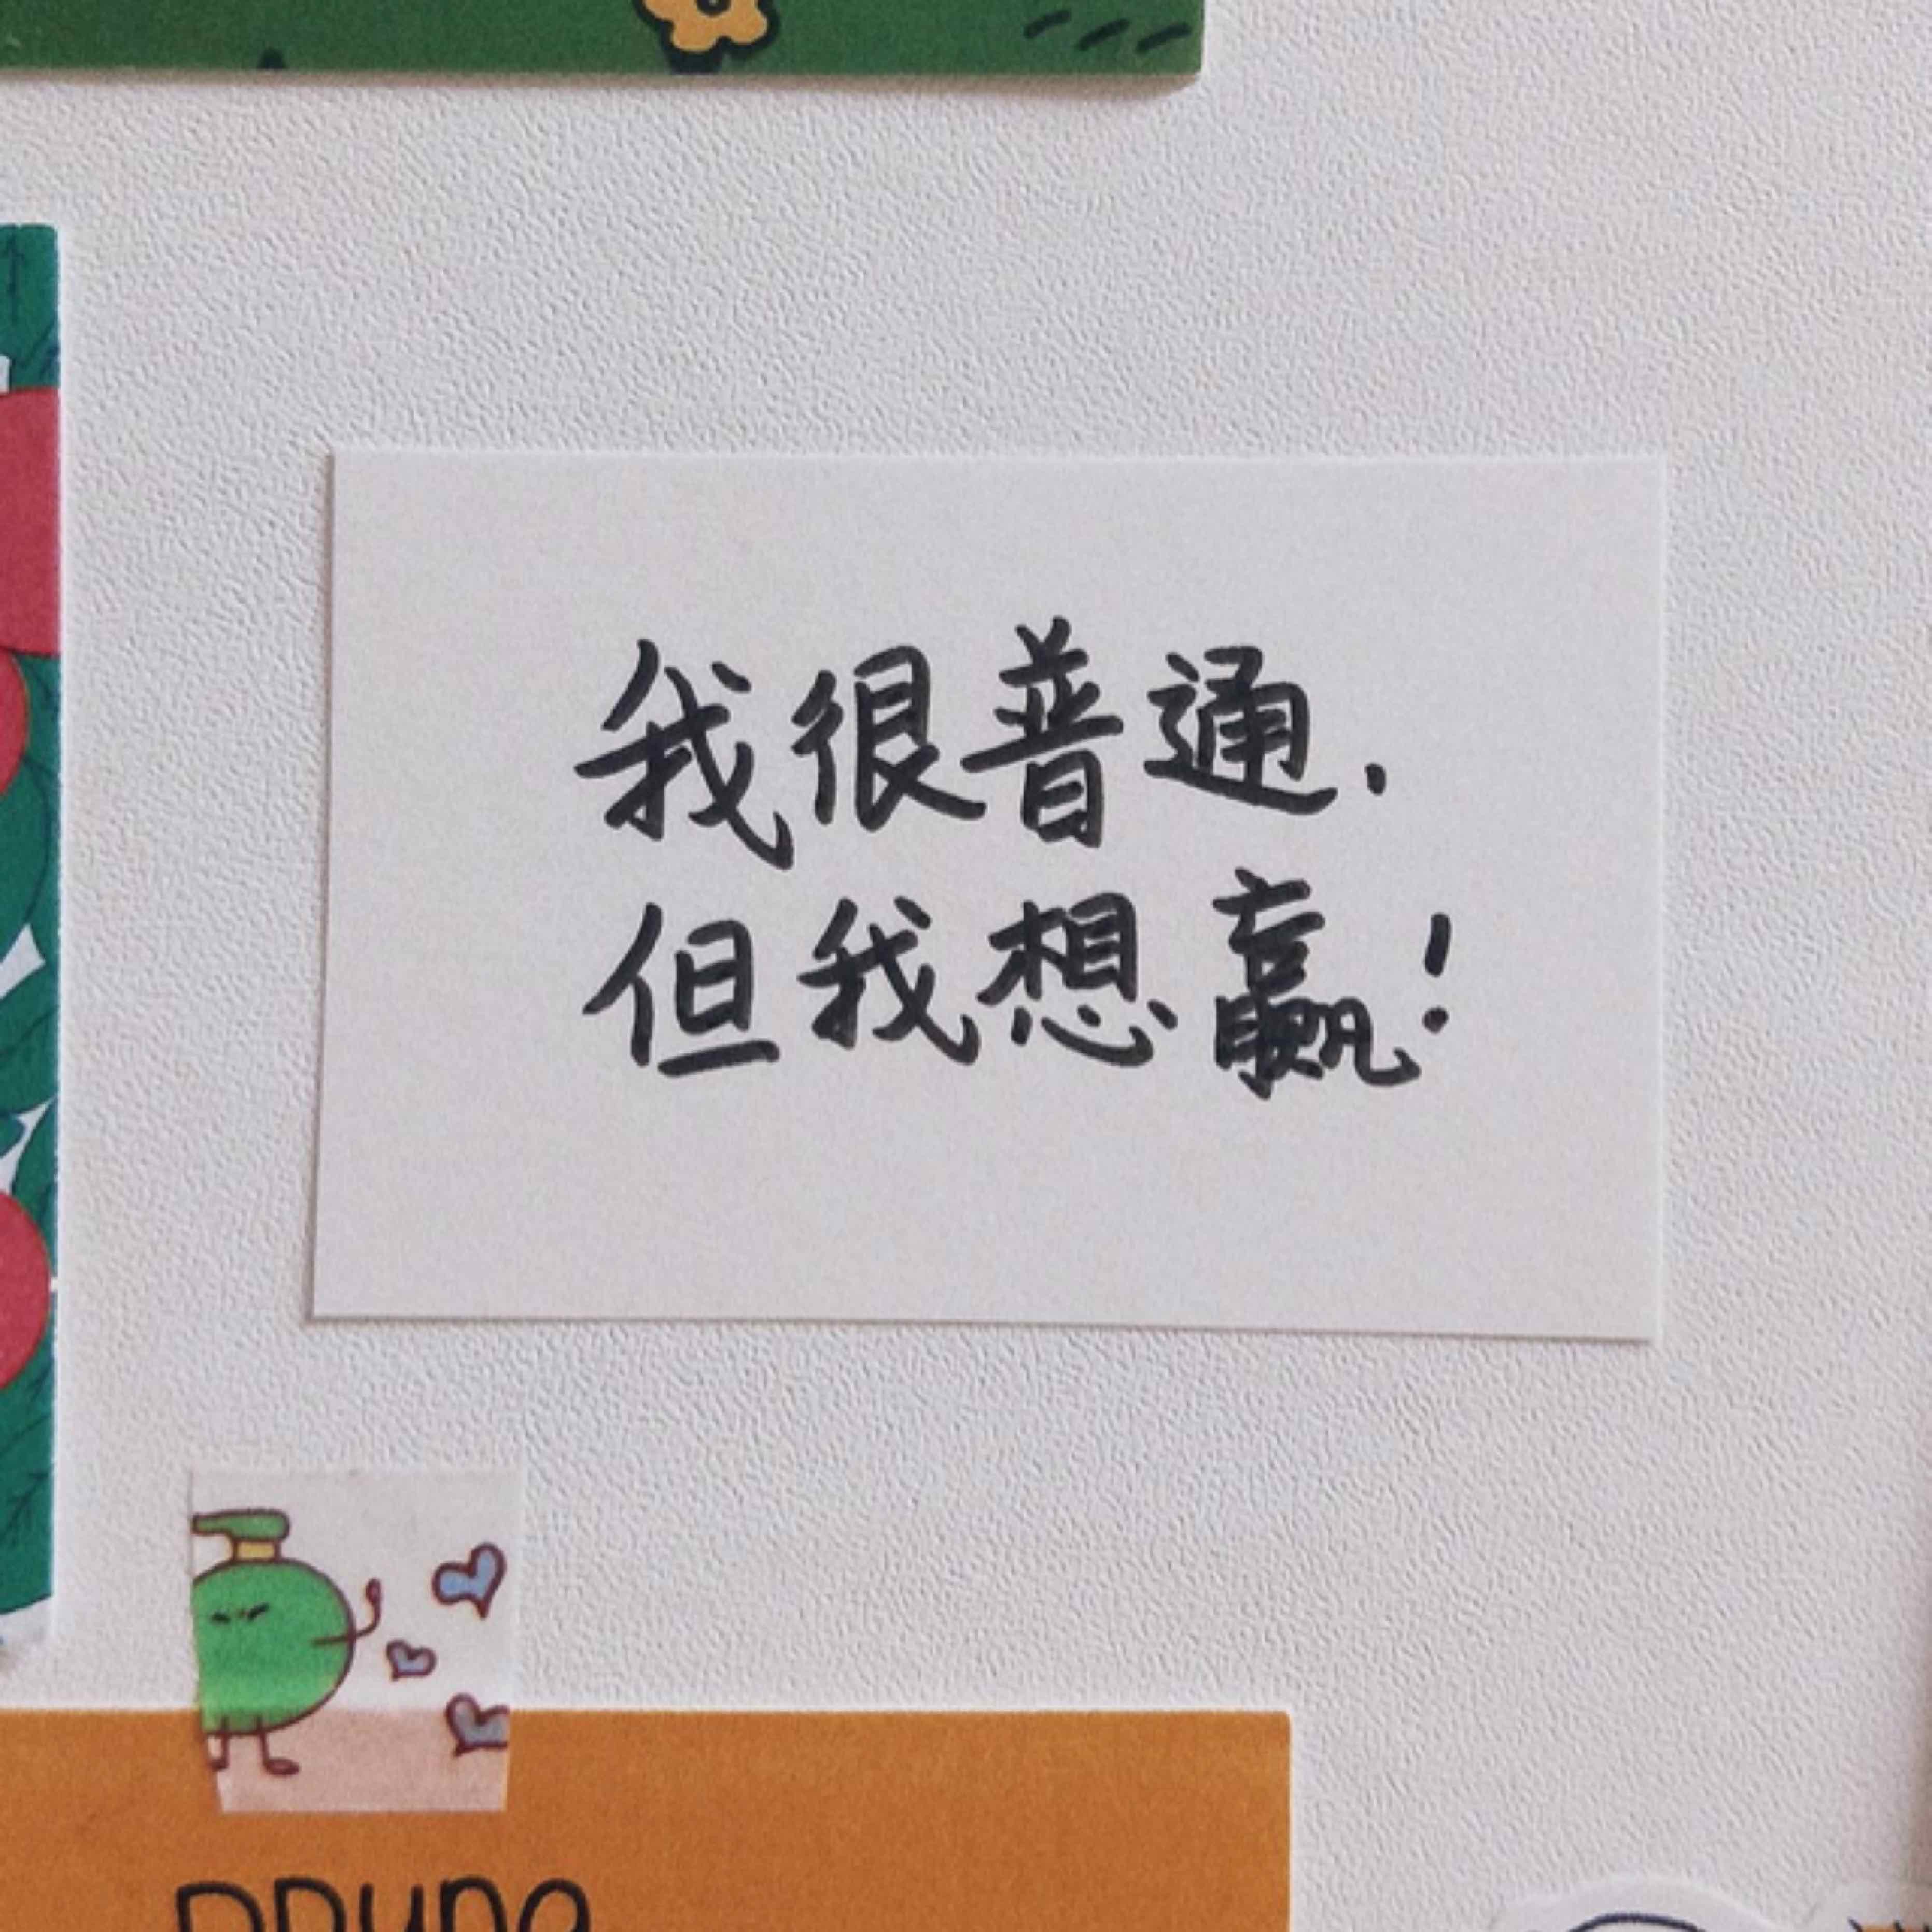 我很普通.
但我想赢!